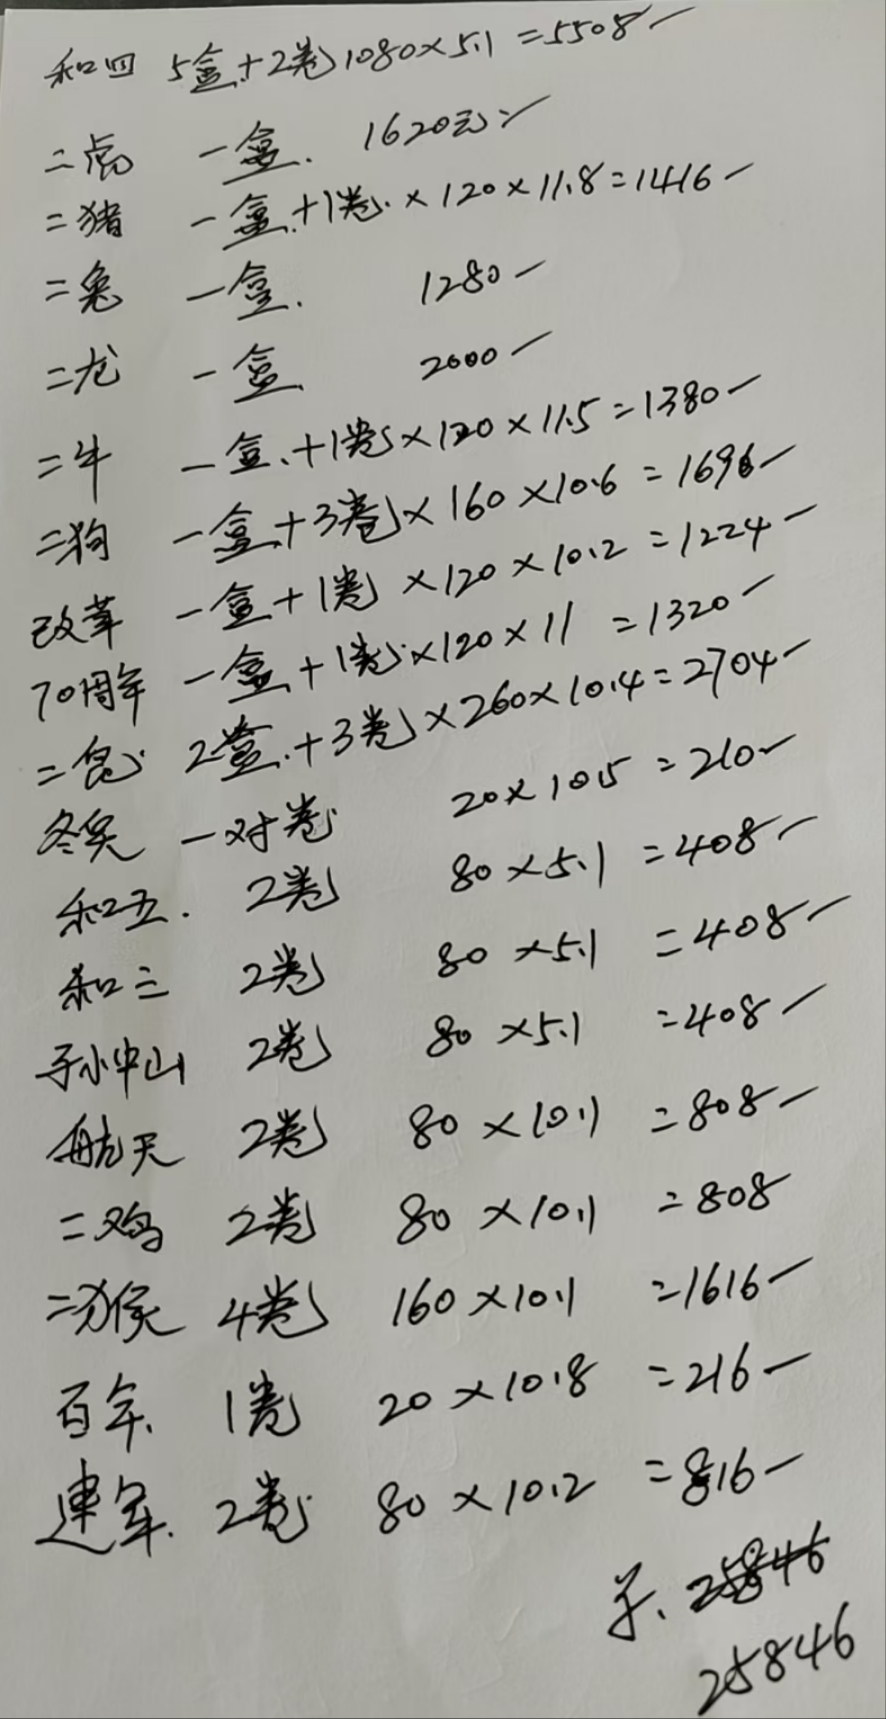 和四 5盒+2卷 1080×5.1=5508
二虎 一盒. 1620元
二猪 一盒+1卷.×120×11.8=1416
二兔 一盒. 1280
二龙 一盒 2000
二牛 一盒+1卷×120×11.5=1380
二狗 一盒+3卷×160×10.6=1696
改革 一盒+1卷×120×10.2=1224
70周年 一盒+1卷×120×11=1320
2盒+3卷×260×10.4=2704
冬奥 一对卷 20×10.5=210
和五. 2卷 80×5.1=408
和三 2卷 80×5.1=408
孙中山 2卷 80×5.1=408
航天 2卷 80×10.1=808
二鸡 2卷 80×10.1=808
二猴 4卷 160×10.1=1616
百年. 1卷 20×10.8=216
建军. 2卷 80×10.2=816
25846
25846